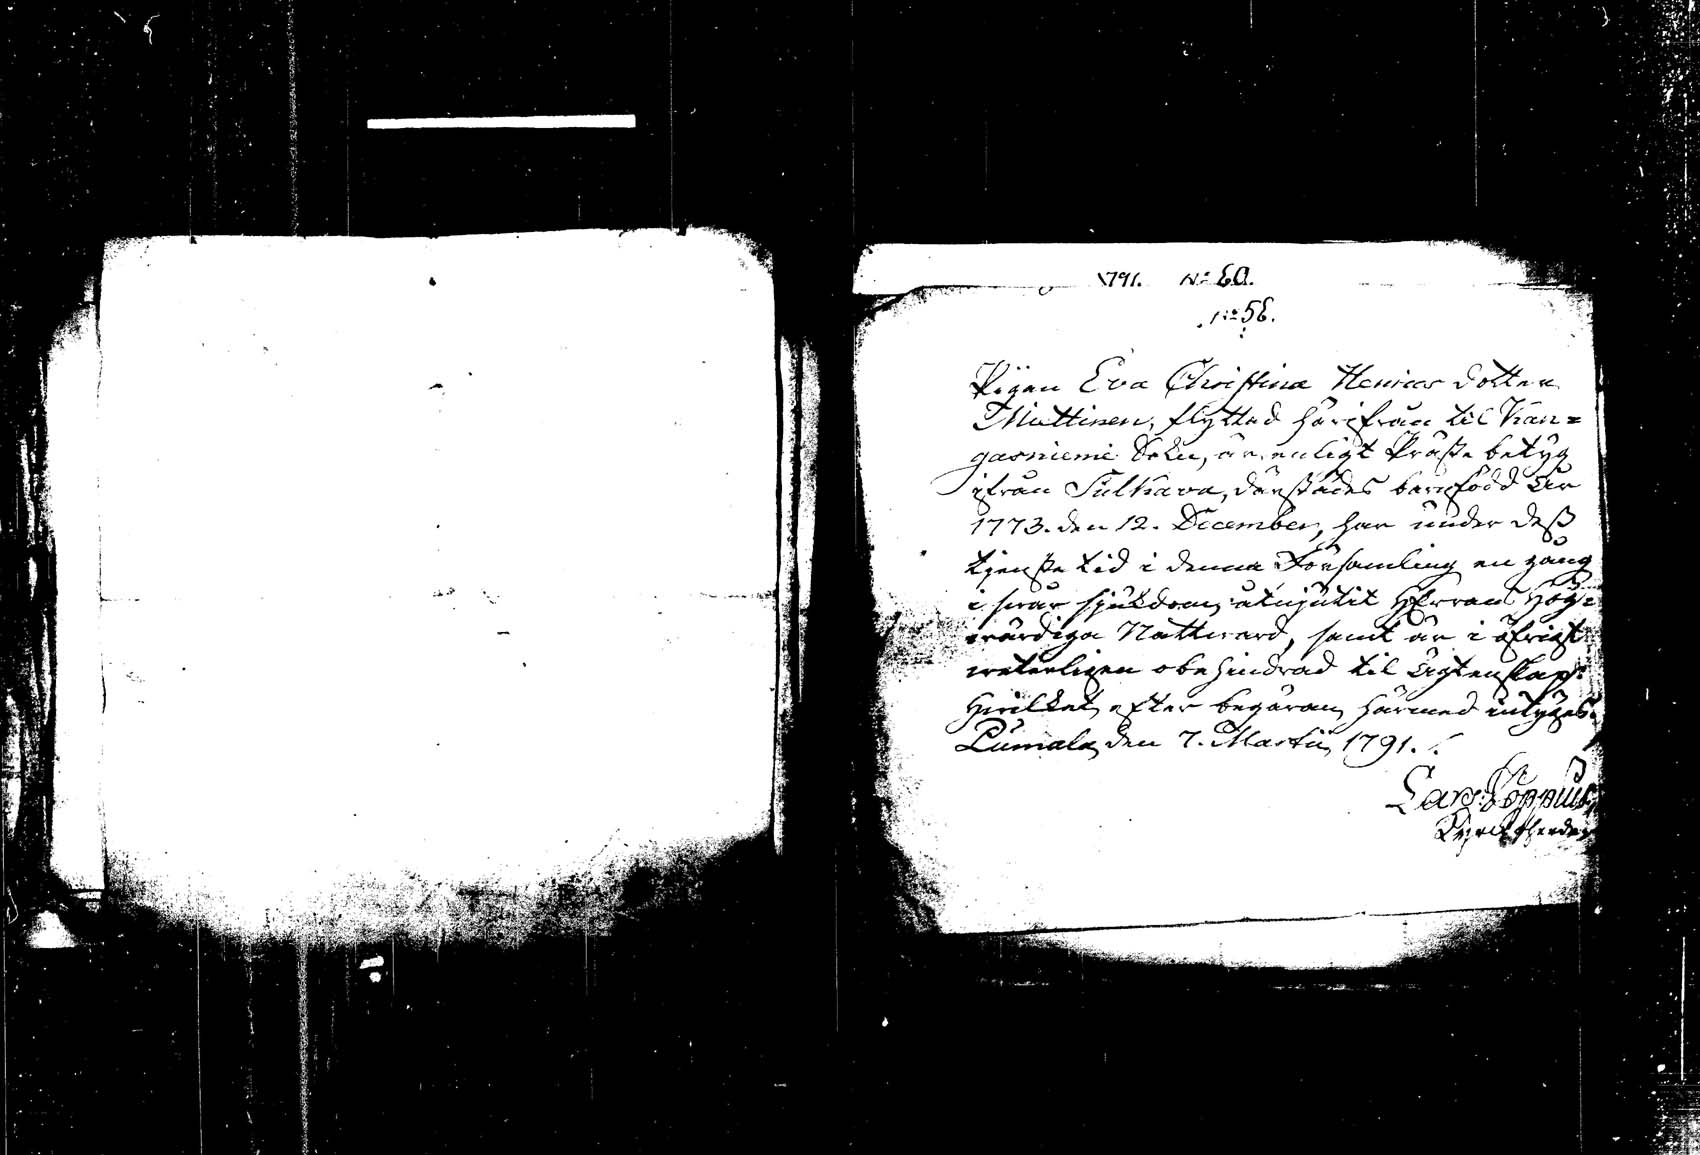 1791. No 60.
No 56.
Pigan Eva Christina Henrics dotter
Muttinen, flyttad härifrån til Kan=
gasniemi Sokn, är enligt Präste betyg
ifrån Sulkava, därstädes barnfödd År
1773. den 12. December, har under deß
tjenste tid i denna Församling en gång
i svår sjukdom, åtnjutit HErrans Hög=
värdiga Nattward, samt är i öfrigt
veterligen obehindrad til Ägtenskap.
Hvilket, efter begäran, härmed intyges.
Pumala, den 7. Martii, 1791.
Lars
Kyrckoherde